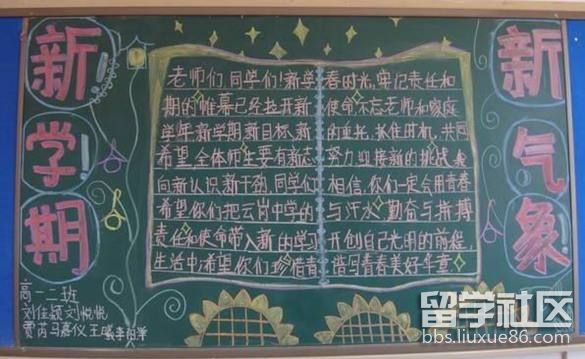 新学期
新气象
老师们同学们!新学
期的帷幕已经拉开新
学年新学期新目标、新
希望,全体师生要有新志
向新认识新干劲,同学们
希望你们把云岗中学的
责任和使命带入新的学习
生活中,希望你们珍惜青
春时光,牢记责任和
使命不忘老师和家庭
的重托,抓住时机,共同
努力迎接新的挑战,我
相信,你们一定会用青春
与汗水,勤奋与拼搏
开创自己光明的前程,
谱写青春美好年章
高一二班
刘佳颖 刘悦悦
贾芮 马嘉仪 王
留学社区
bbs.liuxue86.com